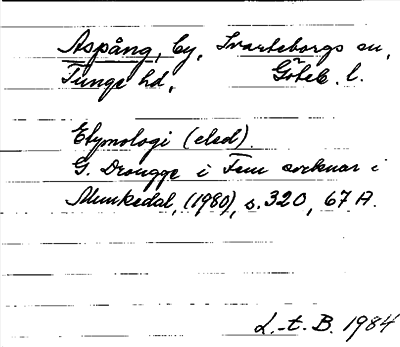 Aspång, by, Svarteborgs sn,
Tunge hd, Göteb. l.
Etymologi (eled).
G. Drougge i Fem socknar i
Munkedal, (1980), s. 320, 67 A.
L. t. B. 1984